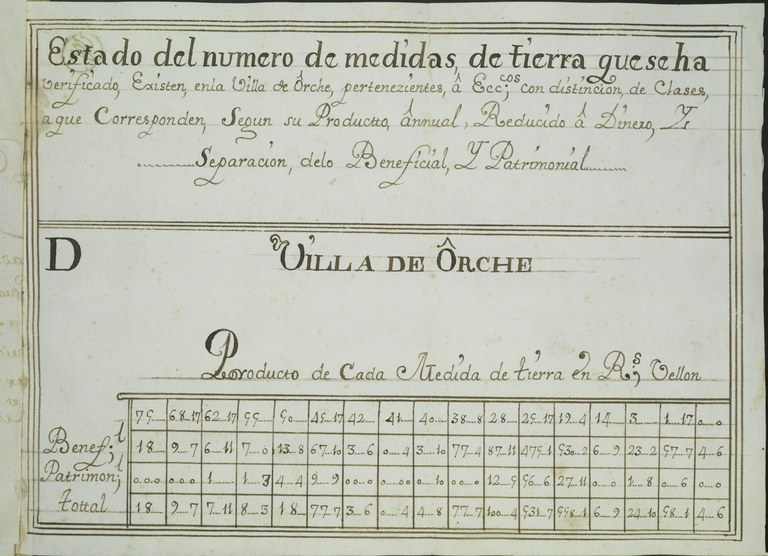 Estado del numero de medidas, de tierra que se ha
verificado, Existen, enla Villa de Ôrche, pertenezientes, â Ecc;cos con distincion, de Clases,
a que Corresponden, Segun su Producto, Ânnual, Reducido â Dinero, Y
Separacion, delo Beneficial, Y Patrimonial
D VILLA DE ÔRCHE
Producto de Cada Medida de tierra en R;s Vellon
75 68..17 62..17 55 50 45..17 42 41 40 38..8 28 25..17 19..4 14 3 1..17 0..0
Benef;l 18 9..7 6..11 7..0 13..8 67..10 3..6 0..4 3..10 77..4 87..11 475..1 530..2 6..9 23..2 57..7 4..6
Patrimon;l 0..0 0..0 1 1..3 4..4 9..9 0..0 0..0 0..10 0..0 12..5 56..6 27..11 0..0 1..8 0..6 0..0
tottal 18 9..7 7..11 8..3 18 77..7 3..6 0..4 4..8 77..7 100..4 531..7 558..1 6..9 24..10 58..1 4..6